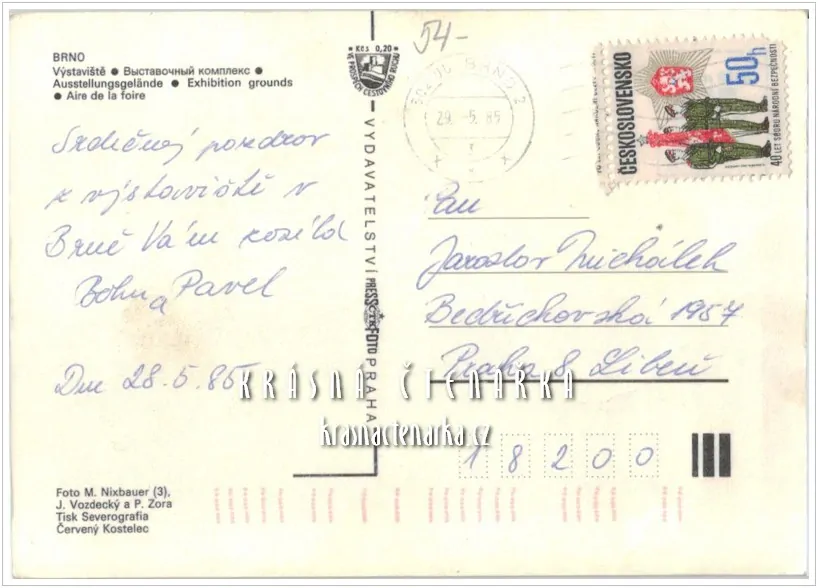 BRNO
Výstaviště ● Выставочный комплекс ●
Ausstellungsgelände ● Exhibition grounds
● Aire de la foire
Kčs 0,20
VE PROSPĚCH CESTOVNÍHO RUCHU
54-
BRNO 2
29.-5.85
ČESKOSLOVENSKO
50h
40 LET SBORU NÁRODNÍ BEZPEČNOSTI
Srdečný pozdrav
z výstaviště v
Brně Vám posílá
a Pavel
Dne 28.5.85
VYDAVATELSTVÍ PRESSFOTO PRAHA
Pan
Jaroslav Michálek
Bedřichovská 1957
Praha 8 Libeň
18200
KRÁSNÁ ČTENÁŘKA
krasnactenarka.cz
Foto M. Nixbauer (3),
J. Vozdecký a P. Zora
Tisk Severografia
Červený Kostelec